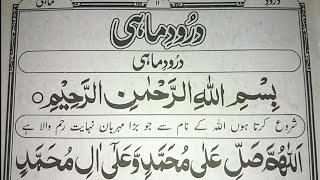 درود ۱۱ ماہی
درود ماہی
درود ماہی
بِسْمِ اللهِ الرَّحْمٰنِ الرَّحِيْمِ
شروع کرتا ہوں اللہ کے نام سے جو بڑا مہربان نہایت رحم والا ہے
اَللّٰهُمَّ صَلِّ عَلٰى مُحَمَّدٍ وَّعَلٰٓى اٰلِ مُحَمَّدٍ